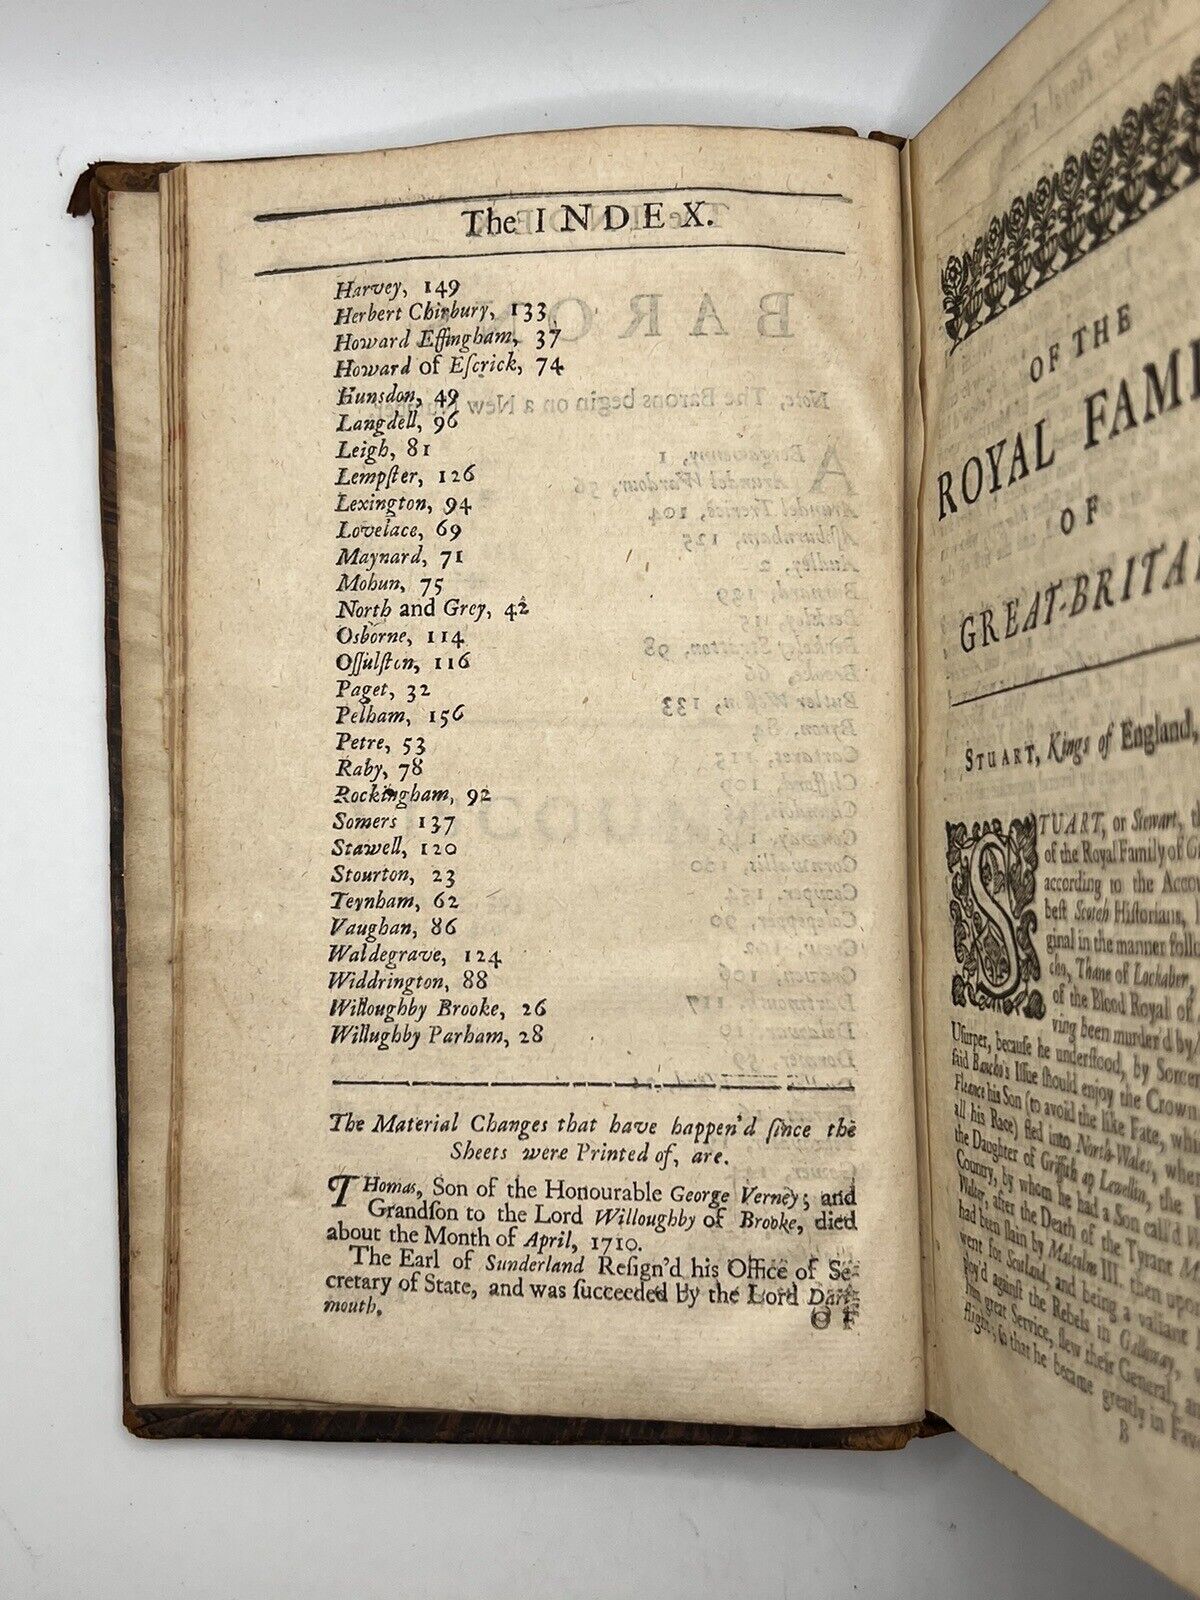 The INDEX.
Harvey, 149
Herbert Chirbury, 133
Howard Effingham, 37
Howard of Eſcrick, 74
Hunsdon, 49
Langdell, 96
Leigh, 81
Lempſter, 126
Lexington, 94
Lovelace, 69
Maynard, 71
Mohun, 75
North and Grey, 42
Osborne, 114
Oſſulſton, 116
Paget, 32
Pelham, 156
Petre, 53
Raby, 78
Rockingham, 92
Somers 137
Stawell, 120
Stourton, 23
Teynham, 62
Vaughan, 86
Waldegrave, 124
Widdrington, 88
Willoughby Brooke, 26
Willughby Parham, 28
The Material Changes that have happen'd ſince the
Sheets were Printed of, are.
THomas, Son of the Honourable George Verney; and
Grandſon to the Lord Willoughby of Brooke, died
about the Month of April, 1710.
The Earl of Sunderland Reſign'd his Office of Se-
cretary of State, and was ſucceeded by the Lord Dart-
mouth.
OF
OF THE
ROYAL FAMI
OF
GREAT-BRITAI
STUART, Kings of England,
STUART, or Stewart, th
of the Royal Family of G
according to the Acco
beſt Scotch Hiſtorians,
ginal in the manner follo
cho, Thane of Lochaber,
of the Blood Royal of
ving been murder'd by
Uſurper, becauſe he underſtood, by Sorcer
ſaid Bancho's Iſſue ſhould enjoy the Crown
Fleance his Son (to avoid the like Fate, whi
all his Race) fled into North-Wales, wher
the Daughter of Griffith ap Lewellin, the
Country, by whom he had a Son call'd W
Walter, after the Death of the Tyrant M
had been ſlain by Malcolm III. then upo
went for Scotland, and being a valiant
ploy'd againſt the Rebels in Galloway, w
him great Service, ſlew their General, an
flight; ſo that he became greatly in Favo
B